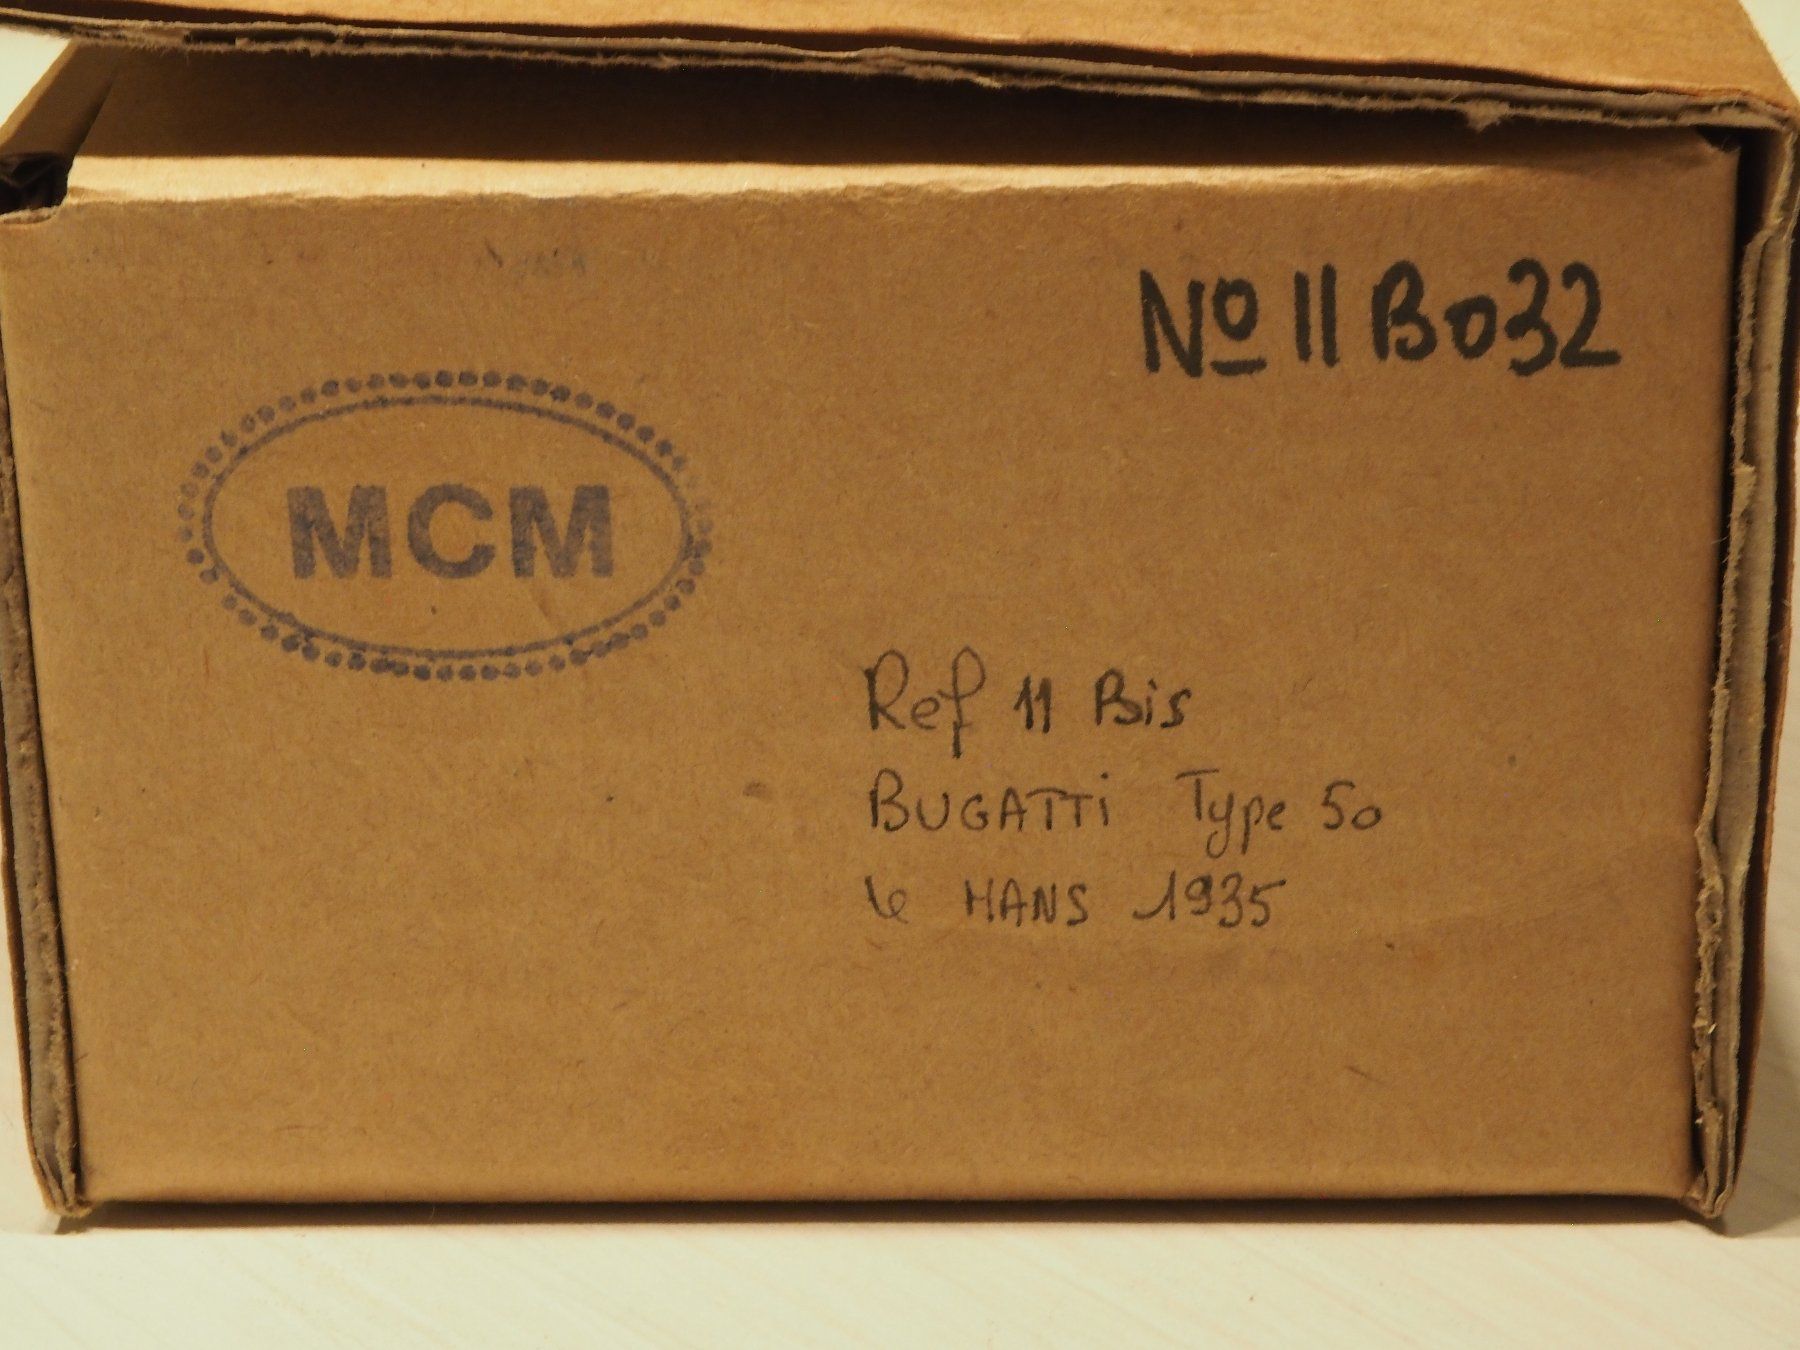 No 11B032
MCM
Ref 11 Bis
BUGATTi Type 50
le MANS 1935